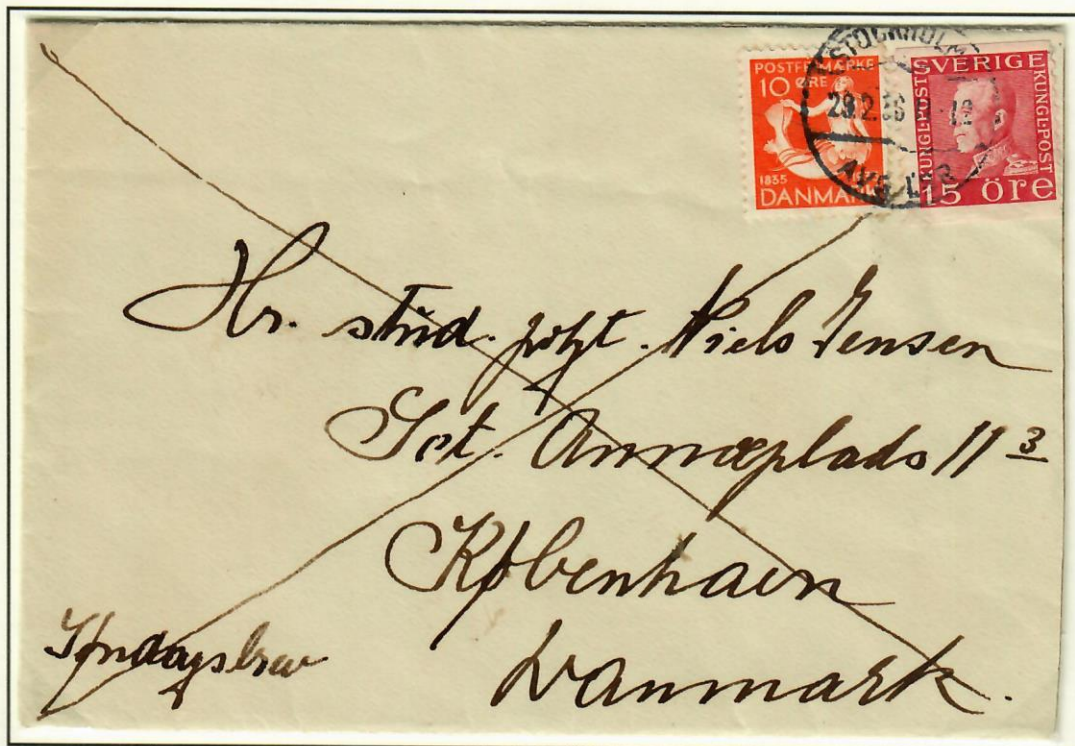 POSTFRIMÆRKE
10 ØRE
1835
DANMARK
STOCKHOLM
29.2.36
AVG
SVERIGE
KUNGL·POST
KUNGL·POST
15 öre
Hr. stud. polyt. Niels Jensen
Sct. Annæplads 11 3
København
Danmark.
Søndagsbrev